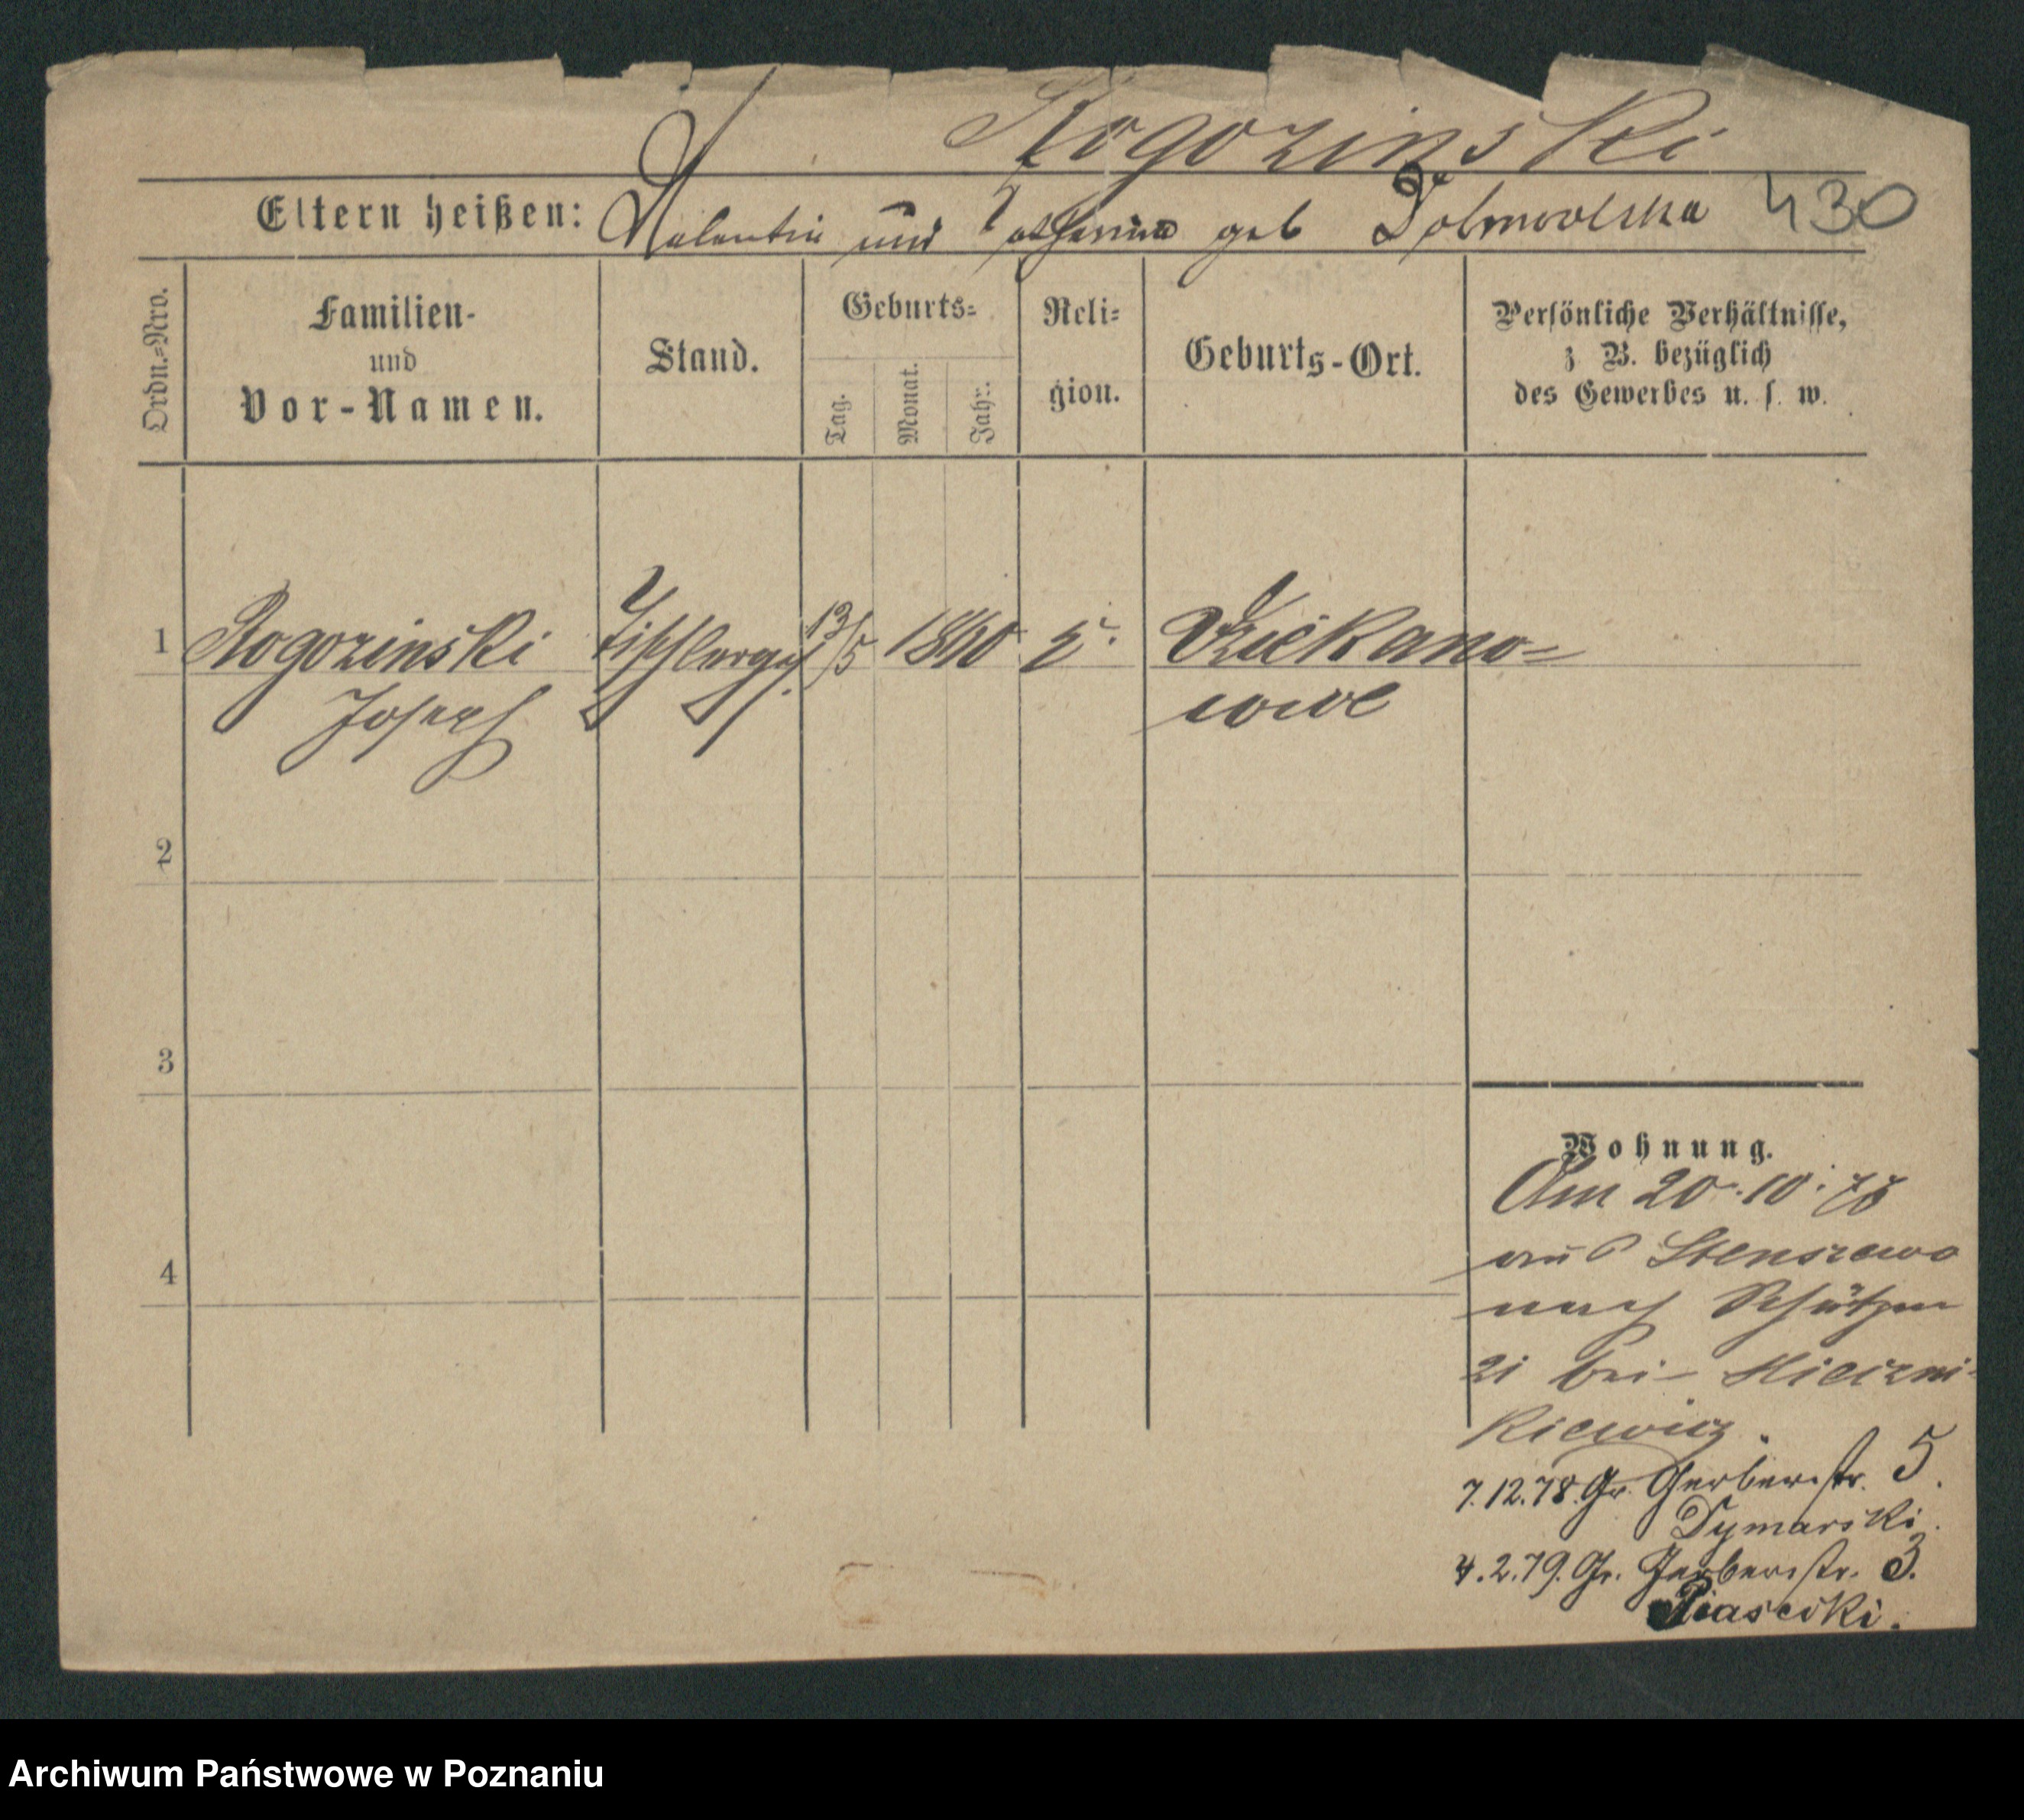 Rogozinski
Eltern heißen: Valentin und Catharina geb Dobrowolska 430
Ordn.=Nro.
Familien-
und
Vor-Namen.
Stand.
Geburts=
Tag.
Monat.
Jahr.
Reli=
gion.
Geburts-Ort.
Persönliche Verhältnisse,
z B. bezüglich
des Gewerbes u. s. w.
1 Rogozinski Tischlerges. 13/5 1860
Joseph
2
3
4
Wohnung.
Am 20.10.78
aus Stenszewo
nach Schützen
21 bei
kiewicz
7.12.78. Gr. Gerberstr. 5.
Dymarski.
4.2.79. Gr. Gerberstr. 3.
Piasecki.
Archiwum Państwowe w Poznaniu